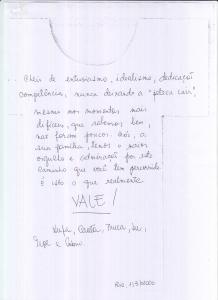 Cheio de entusiasmo, idealismo, dedicação
competência, nunca deixando a "peteca cair",
mesmo nos momentos mais
difíceis, que sabemos bem,
não foram poucos. Nós, a
sua família, temos o maior
orgulho e admiração por este
caminho que você tem percorrido
E isto o que realmente
VALE!
Rio,